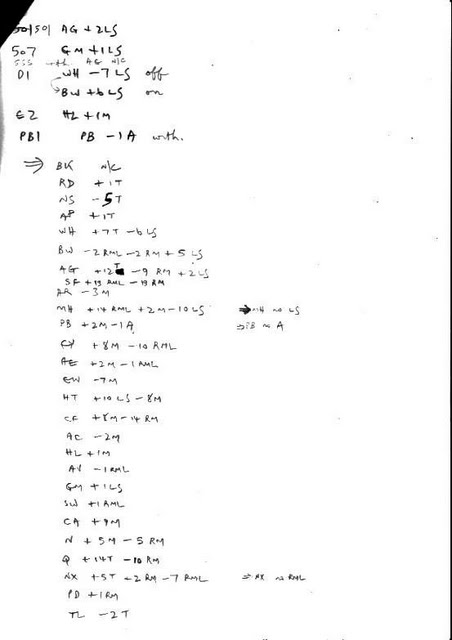 50/501 AG + 2LS
507 GM + 1LS
555 with AG N/C
D1 WH - 7 LS off
→ BW + 6 LS on
E2 HL + 1M
PB1 PB - 1 A with.
⇒ BK N/C
RD + 1T
NS - 5T
AP + 1T
WH + 7T - 6 LS
BW - 2 RML - 2 RM + 5 LS
AG + 12T - 9 RM + 2LS
SF + 19 RML - 19 RM
AR - 3M
MH + 14 RML + 2M - 10 LS ⇒ MH no LS
PB + 2M - 1A ⇒ PB no A
EY + 8M - 10 RML
AE + 2M - 1 RML
EW - 7M
HT + 10 LS - 8M
CF + 8M - 14 RM
AC - 2M
HL + 1M
AV - 1RML
GM + 1LS
SW + 1RML
CA + 9M
N + 5M - 5 RM
Q + 14T - 10 RM
NX + 5T + 2 RM - 7 RML ⇒ NX no RML
PD + 1RM
TL - 2T